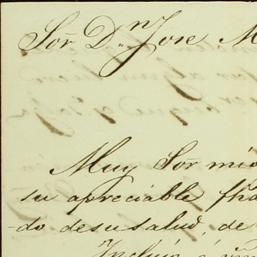 Sor. Dn. Jose M
Muy Sor mio
su apreciable fha
do desu salud, de
Incluio á